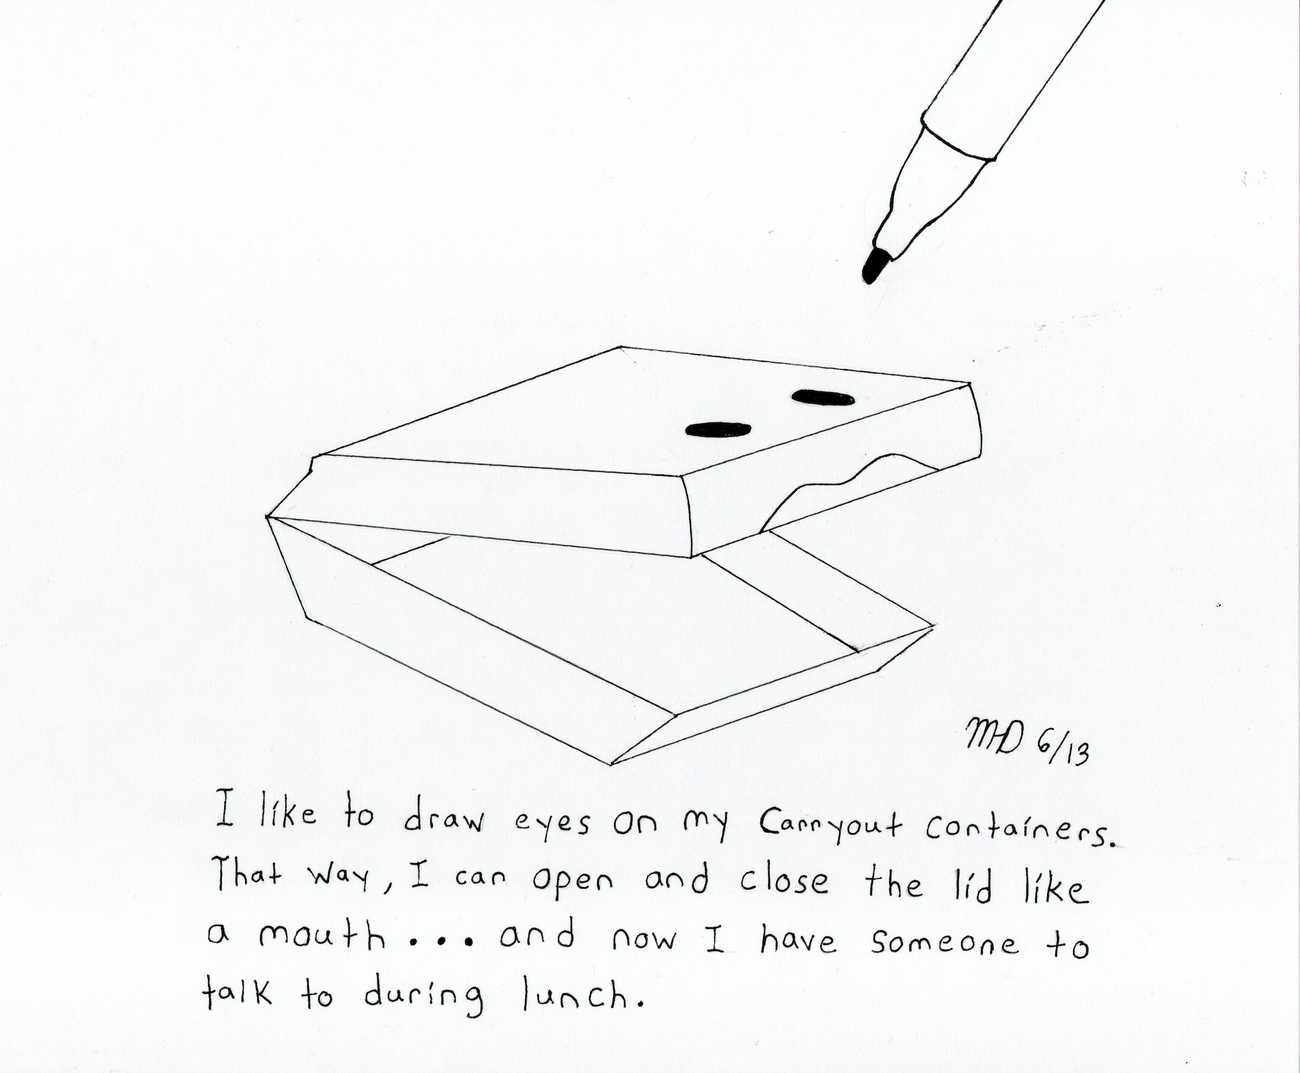 MHD 6/13
I like to draw eyes on my Carryout containers.
That way, I can open and close the lid like
a mouth ... and now I have someone to
talk to during lunch.